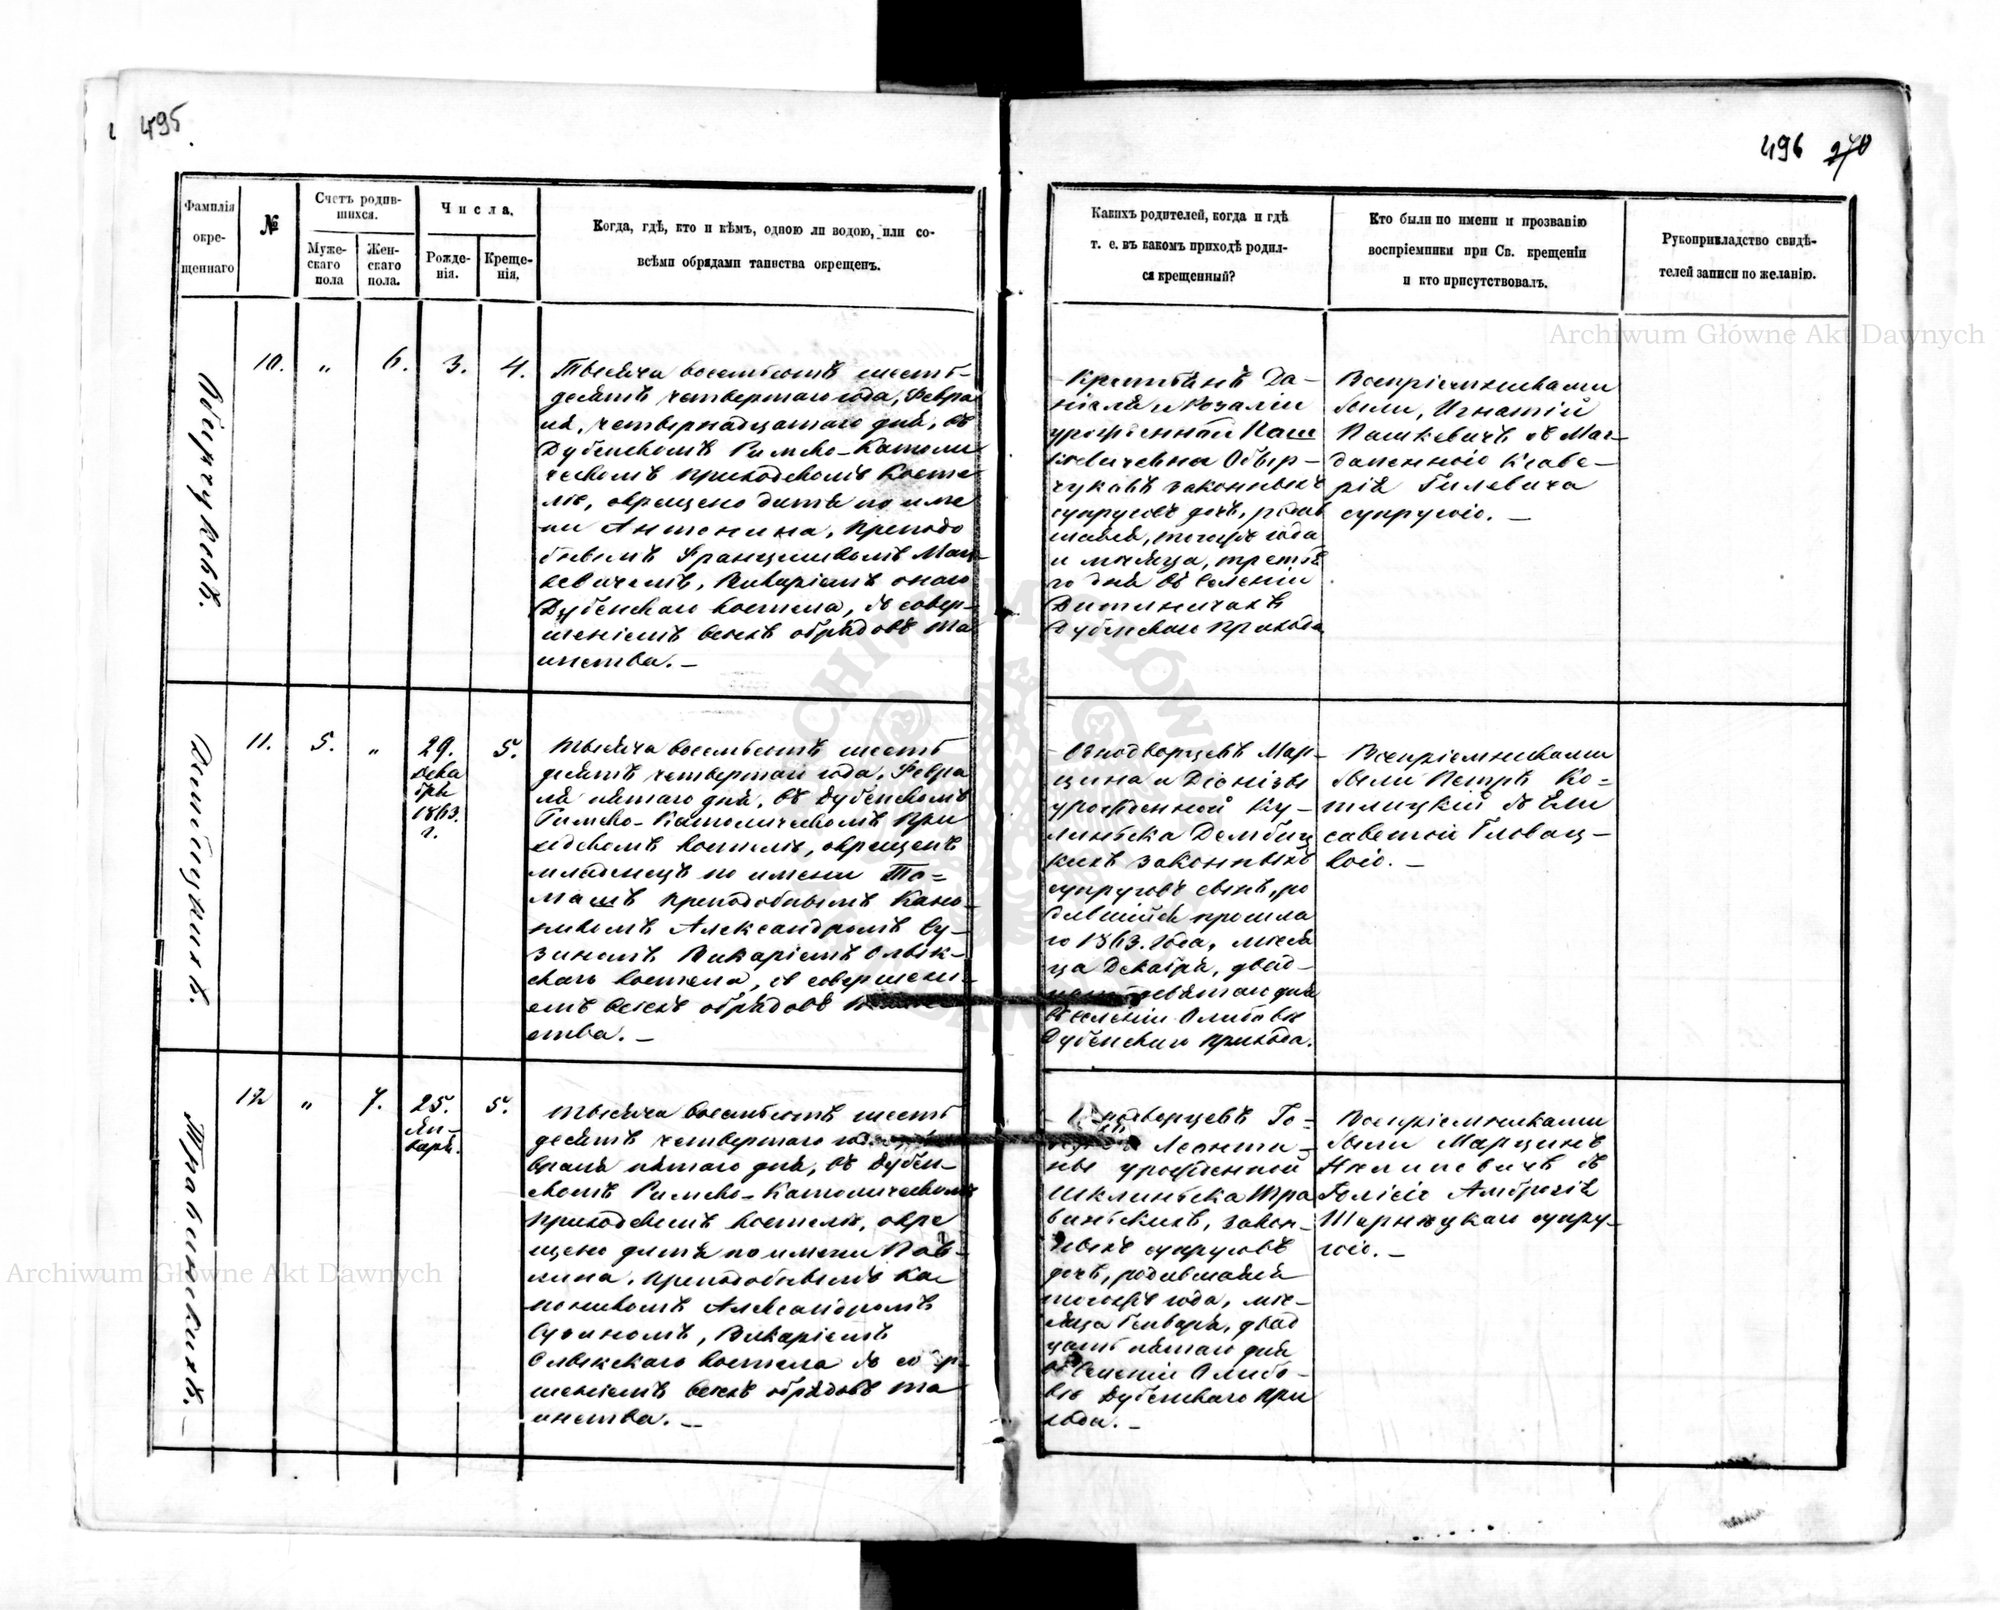 495
Фамилія
окре-
щеннаго
№
Счетъ родив-
шихся.
Муже-
скаго
пола
Жен-
скаго
пола.
Числа.
Рожде-
нія.
Креще-
нія.
Когда, гдѣ, кто и кѣмъ, одною ли водою, или со-
всѣми обрядами таинства окрещенъ.
10.
„
6.
3.
4.
Тысяча восемьсотъ шесть-
десятъ четвертаго года, Февра
ля, четвернадцатаго дня, въ
Дубенскомъ Римско-Католи
ческомъ приходскомъ Косте
лѣ, окрещено дитя по име
ни Антонина, преподо
бнымъ Францишкомъ
Викаріемъ онаго
Дубенскаго костела, съ совер-
шеніемъ всехъ обрядовъ та
инства. —
Дембицкихъ.
11.
5.
„
29.
Дека
бря
1863.
г.
5.
Тысяча восемьсотъ шесть
десятъ четвертаго года, Февра
ля пятаго дня, въ Дубенскомъ
Римско-Католическомъ при
ходскомъ костелѣ, окрещенъ
младенецъ по имени То=
машъ преподобнымъ Кано-
никомъ Александромъ Су-
зиномъ Викаріемъ Олык-
скаго костела, съ совершені-
емъ всехъ обрядовъ
ства. —
Травинскихъ. —
12
„
7.
25.
Ян-
варя.
5.
Тысяча восемьсотъ шесть
десятъ четвертаго
враля пятаго дня, въ Дубен-
скомъ Римско-Католическомъ
приходскомъ костелѣ, окре
щено дитя по имени Пав-
лина, преподобнымъ Ка
ноникомъ Александромъ
Сузиномъ, Викаріемъ
Олыкскаго костела съ совер-
шеніемъ всехъ обрядовъ та
инства. —
496 270
Какихъ родителей, когда и гдѣ
т. е. въ какомъ приходѣ родил-
ся крещенный?
Кто были по имени и прозванію
воспріемники при Св. крещеніи
и кто присутствовалъ.
Рукоприкладство свидѣ-
телей записи по желанію.
Крестьянъ Да-
ніеля и Розаліи
урожденной Паш
кевичевна Обыр-
чуковъ законныхъ
супруговъ дочь, родив
шаяся, тогожъ года
и месяца, третья
го дня въ селеніи
Дубенскаго прихода
Воспріемниками
были, Игнатій
Пашкевичъ съ Маг-
даленною Ксаве-
рія Гилевича
супругою. —
Однодворцевъ Мар-
цина и Діонізы
урожденной Ку-
линьска Дембиц
кихъ законныхъ
супруговъ сынъ, ро
дившійся прошла
го 1863. года, меся
ца Декабря, двад-
девятаго дня
въ селеніи
Дубенскаго прихода.
Воспріемниками
были Петръ Ко=
тлицкій съ Ели
саветою Гловац-
кою. —
Однодворцевъ
Леонти-
ны урожденной
Шклиньска Тра
виньскихъ, закон-
ныхъ супруговъ
дочь, родившаяся
тогожъ года, ме-
сяца Генваря, двад
цать пятаго дня
въ селеніи
Дубенскаго при
хода. —
Воспріемниками
были Марцинъ
съ
Амброзія
супру-
гою. —
Archiwum Główne Akt Dawnych
Archiwum Główne Akt Dawnych